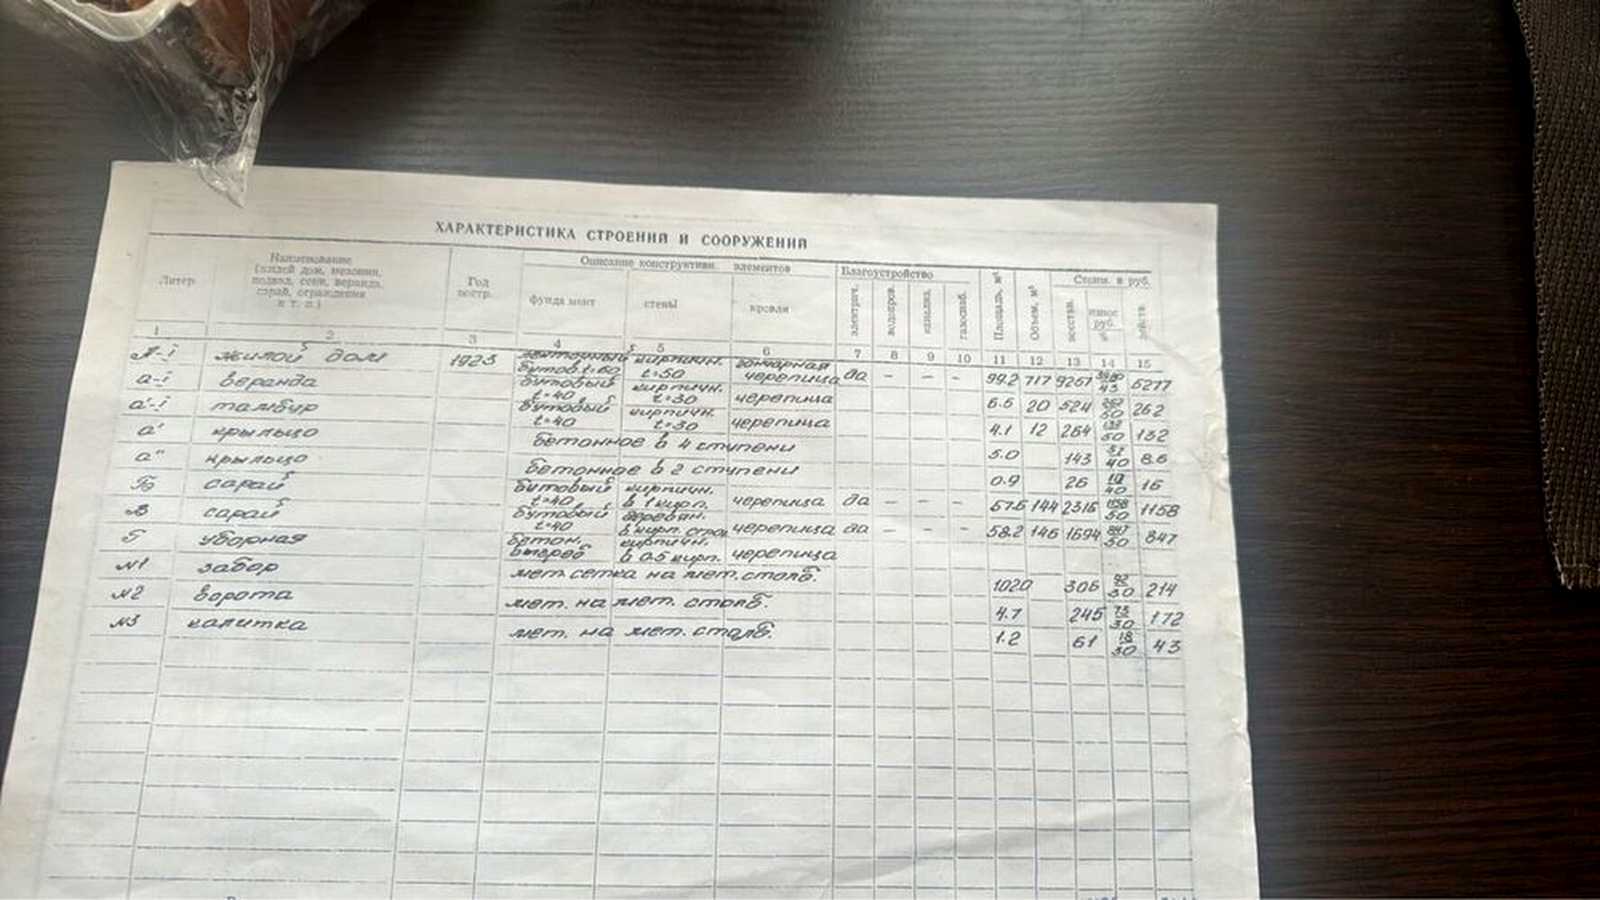 ХАРАКТЕРИСТИКА СТРОЕНИЙ И СООРУЖЕНИЙ
Литер Наименование (жилой дом, мезонин, подвал, сени, веранда, сарай, ограждения и т. п.) Год постр. Описание конструктивн. элементов Благоустройство Площадь, м² Объем, м³ Стоим. в руб.
фундамент стены кровли электрич. водопров. канализ. газоснаб. восстан. износ руб. действ.
1 2 3 4 5 6 7 8 9 10 11 12 13 14 15
А-I жилой дом 1923 ленточный бутов. t=60 кирпичн. t=50 гончарная черепица да – – – 99.2 717 9257 43 5277
а-I веранда бутовый t=40 кирпичн. t=30 черепица 6.6 20 524 262/50 262
а'-I тамбур бутовый t=40 кирпичн. t=30 черепица 4.1 12 264 132/50 132
а' крыльцо бетонное в 4 ступени 5.0 143 57/40 86
а" крыльцо бетонное в 2 ступени 0.9 26 10/40 16
Б сарай бутовый t=40 кирпичн. в 1 кирп. черепица да – – – 57.6 144 2316 1158/50 1158
В сарай бутовый t=40 деревян. в кирп. черепица да – – – 58.2 146 1694 847/50 847
Г уборная бетон. кирпичн. в 0.5 кирп. черепица
№1 забор мет. сетка на мет. столб. 1020 306 92/30 214
№2 ворота мет. на мет. столб. 4.7 245 73/30 172
№3 калитка мет. на мет. столб. 1.2 61 18/30 43